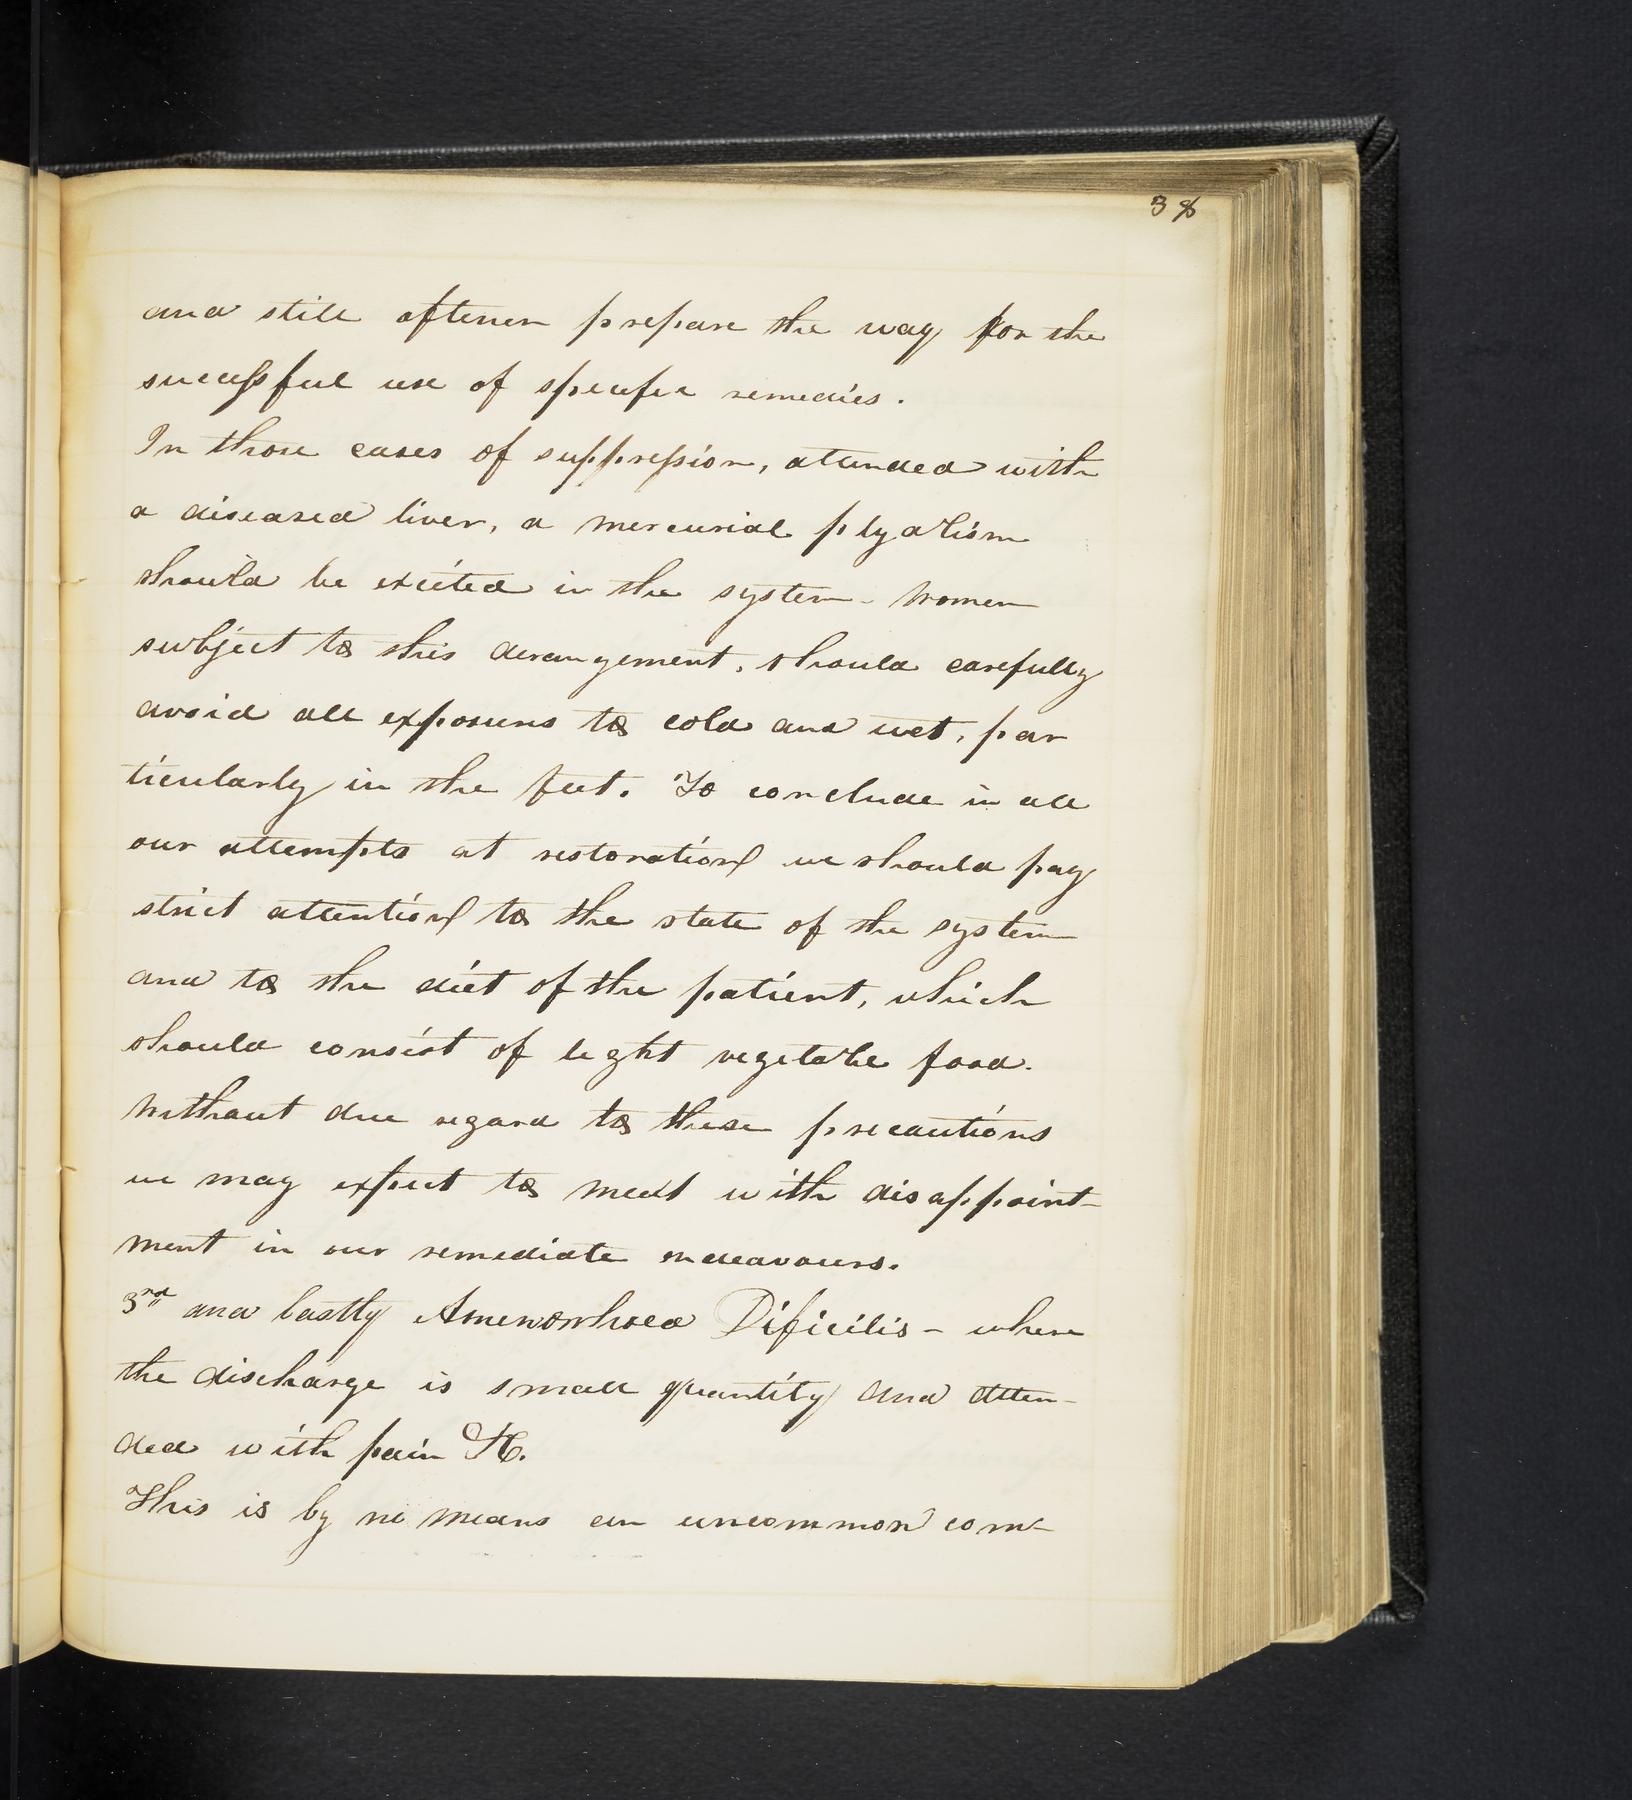 38
and still oftener prepare the way for the
sucessful use of specific remedies.
In those cases of suppression, attended with
a diseased liver, a mercurial plyalism
should be excited in the system - Women
subject to this derangement, should carefully
avoid all exposures to cold and wet, par
ticularly in the feet. To conclude in all
our attempts at restoration we should pay
strict attention to the state of the system
and to the diet of the patient, which
should consist of light vegetable food.
Without due regard to these precautions
we may expect to meet with disappoint-
ment in our remediate endeavours.
3rd and lastly Amenorrhoea Dificilis - where
the discharge is small quantity and atten-
ded with pain &c.
This is by no means an uncommon com-